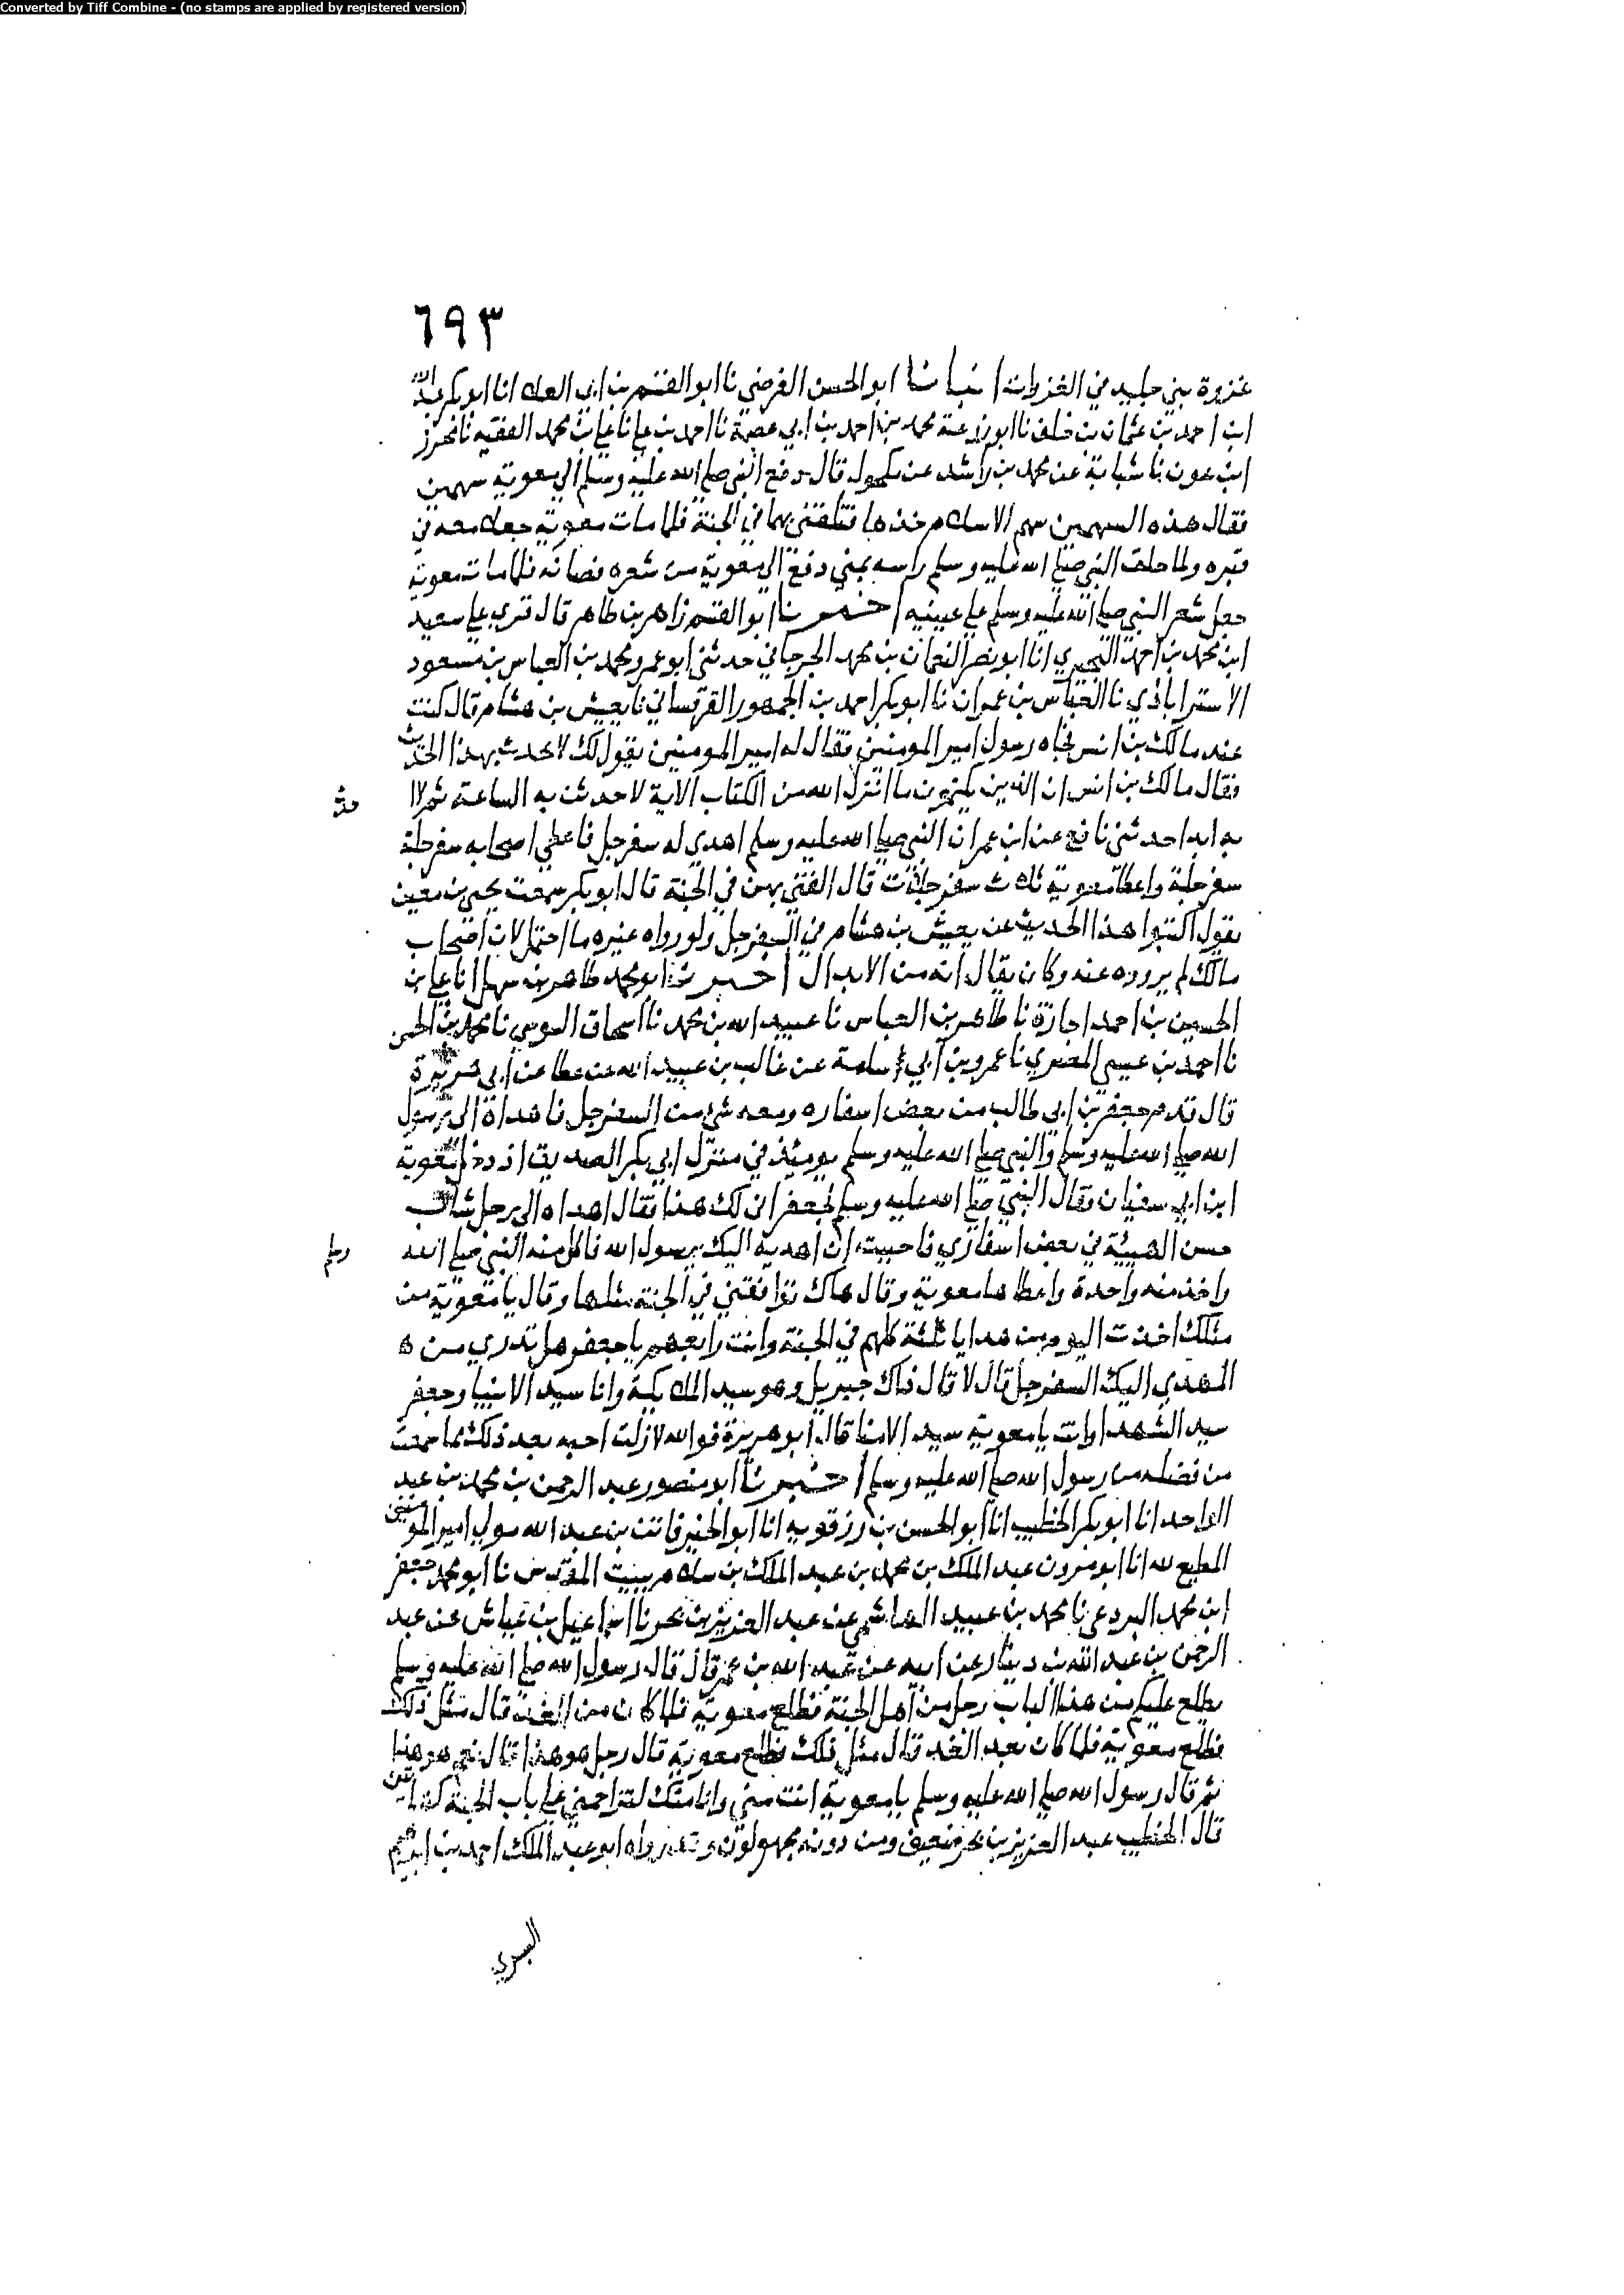 Converted by Tiff Combine - (no stamps are applied by registered version)
٦٩٣
غزوة بني في الغزوات انبانا ابو الحسن الفرضي نا ابو القسم بن ابي العلا انا ابو بكر عبد الله
ابن احمد بن عثمان بن خلف نا ابو زرعة محمد بن احمد بن ابي عصمة نا احمد بن علي نا علي بن محمد الفقيه نا محرز
ابن عون نا شبابة عن محمد بن راشد عن مكحول قال دفع النبي صلى الله عليه وسلم الى معوية سهمين
فقال هذه السهمين سهم الاسلام خذها فتلقني بهما في الجنة فلما مات معوية جعله معه في
قبره ولما حلق النبي صلى الله عليه وسلم راسه بمنى دفع الى معوية من شعره فصانه فلما مات معوية
جعل شعر النبي صلى الله عليه وسلم على عينيه اخبرنا ابو القسم زاهر بن طاهر قال قرى على سعيد
ابن محمد بن احمد البحيري انا ابو نصر النعمان بن محمد الجرجاني حدثني ابو عمرو محمد بن العباس بن مسعود
الاستراباذي نا العباس بن عمران نا ابو بكر احمد بن الجمهور القرقساني نا يعيش بن هشام قال كنت
عند مالك بن انس فجاه رسول امير المومنين فقال له امير المومنين يقول لك لا تحدث بهذا الحديث
فقال مالك بن انس ان الذين يكتمون ما انزل الله من الكتاب الاية لاحدثن به الساعة ثم لا
به ابدا حدثني نافع عن ابن عمر ان النبي صلى الله عليه وسلم اهدي له سفرجل فاعطى اصحابه سفرجلة
سفرجلة واعطا معوية ثلاث سفرجلات قال القني بهن في الجنة قال ابو بكر سمعت يحيى بن معين
يقول اكتبوا هذا الحديث عن يعيش بن هشام في السفرجل ولو رواه غيره ما احتمل لان اصحاب
مالك لم يرووه عنه وكان يقال انه من الابدال اخبرنا ابو محمد طاهر بن سهل انا علي بن
الحسين بن احمد اجازة نا طاهر بن العباس نا عبيد الله بن محمد نا اسحاق السوسي نا محمد بن الحسن
نا احمد بن عيسى المصري نا عمرو بن ابي سلمة عن غالب بن عبيد الله عن عطا عن ابي هريرة
قال قدم جعفر بن ابي طالب من بعض اسفاره ومعه شي من السفرجل فاهداه الى رسول
الله صلى الله عليه وسلم والنبي صلى الله عليه وسلم يومئذ في منزل ابي بكر الصديق اذ دخل معوية
ابن ابي سفيان وقال النبي صلى الله عليه وسلم لجعفر انى لك هذا فقال اهداه الي رجل شاب
حسن الهيئة في بعض اسفاري فاحببت ان اهديه اليك يرسول الله فاكل منه النبي صلى الله
وسلم
واخذ منه واحدة واعطاها معوية وقال هاك توافقني في الجنة بمثلها وقال يا معوية من
مثلك اخذت اليوم من هدايا ثلثة كلهم في الجنة وانت رابعهم يا جعفر هل تدري من ه
المهدي اليك السفرجل قال لا قال ذاك جبريل وهو سيد الملايكة وانا سيد الانبيا وجعفر
سيد الشهدا وانت يا معوية سيد الامنا قال ابو هريرة فوالله لازلت احبه بعد ذلك مما سمعت
من فضله من رسول الله صلى الله عليه وسلم اخبرنا ابو منصور عبد الرحمن بن محمد بن عبد
الواحد انا ابو بكر الخطيب انا ابو الحسن بن رزقويه انا ابو الخير فاتن بن عبد الله مولى امير المومنين
المطيع لله انا ابو مروان عبد الملك بن محمد بن عبد الملك بن سلام ببيت المقدس نا ابو محمد جعفر
ابن محمد البردعي نا محمد بن عبيد الهاشمي عن عبد العزيز بن بحر نا اسماعيل بن عياش عن عبد
الرحمن بن عبد الله بن دينار عن ابيه عن عبد الله بن عمر قال قال رسول الله صلى الله عليه وسلم
يطلع عليكم من هذا الباب رجل من اهل الجنة فطلع معوية فلما كان من الغد قال مثل ذلك
فطلع معوية فلما كان بعد الغد قال مثل ذلك فطلع معوية قال رجل هو هذا قال نعم هو هذا
ثم قال رسول الله صلى الله عليه وسلم يا معوية انت مني وانا منك لتزاحمني على باب الجنة كهاتين
قال الخطيب عبد العزيز بن بحر ضعيف ومن دونه مجهولون وقد رواه ابو عبد الملك احمد بن ابرهيم
البسري